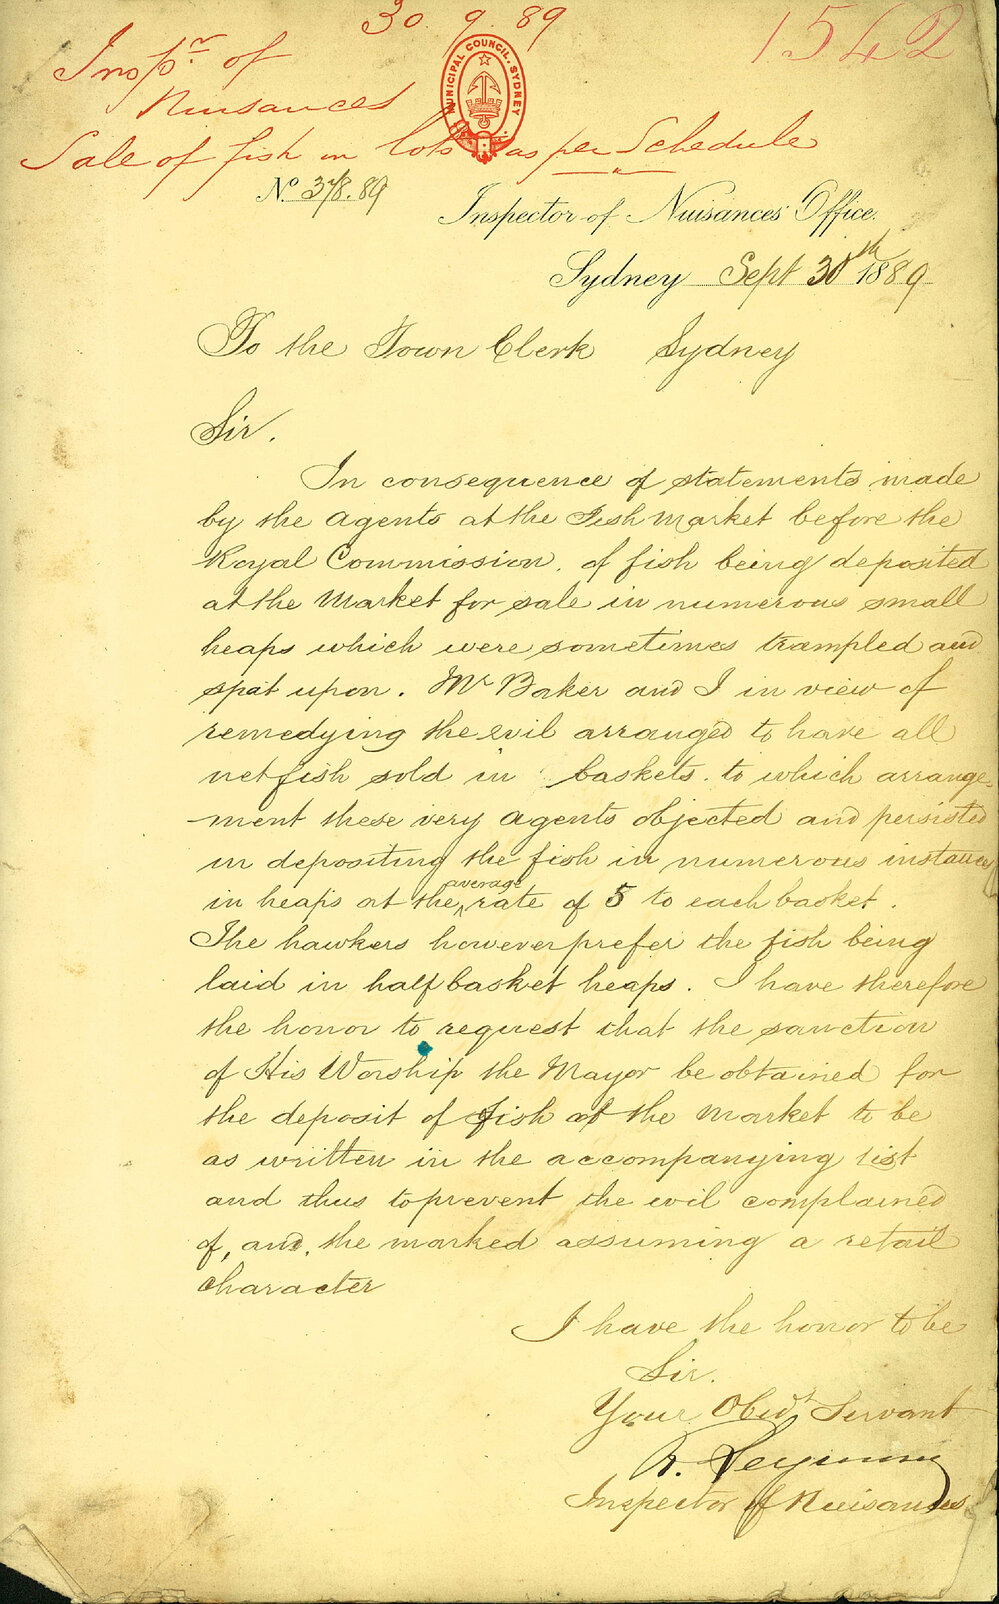 30 . 9 . 89
1542
Inspr. of
Nuisances
MUNICIPAL COUNCIL. SYDNEY
Sale of fish in lots as per Schedule
No. 378.89
Inspector of Nuisances Office.
Sydney Sept 30th 1889
To the Town Clerk Sydney
Sir.
In consequence of statements made
by the Agents at the Fish Market before the
Royal Commission. of fish being deposited
at the Market for sale in numerous small
heaps which were sometimes trampled and
spat upon. Mr Baker and I in view of
remedying the evil arranged to have all
net fish sold in baskets. to which arrange
-ment these very Agents objected and persisted
in depositing the fish in numerous instances
in heaps at the average rate of 5 to each basket.
The hawkers however prefer the fish being
laid in half basket heaps. I have therefore
the honor to request that the sanction
of His Worship the Mayor be obtained for
the deposit of fish at the Market to be
as written in the accompanying list
and thus to prevent the evil complained
of, and, the marked assuming a retail
character
I have the honor to be
Sir.
Your Obedt Servant
R. Seymour
Inspector of Nuisances